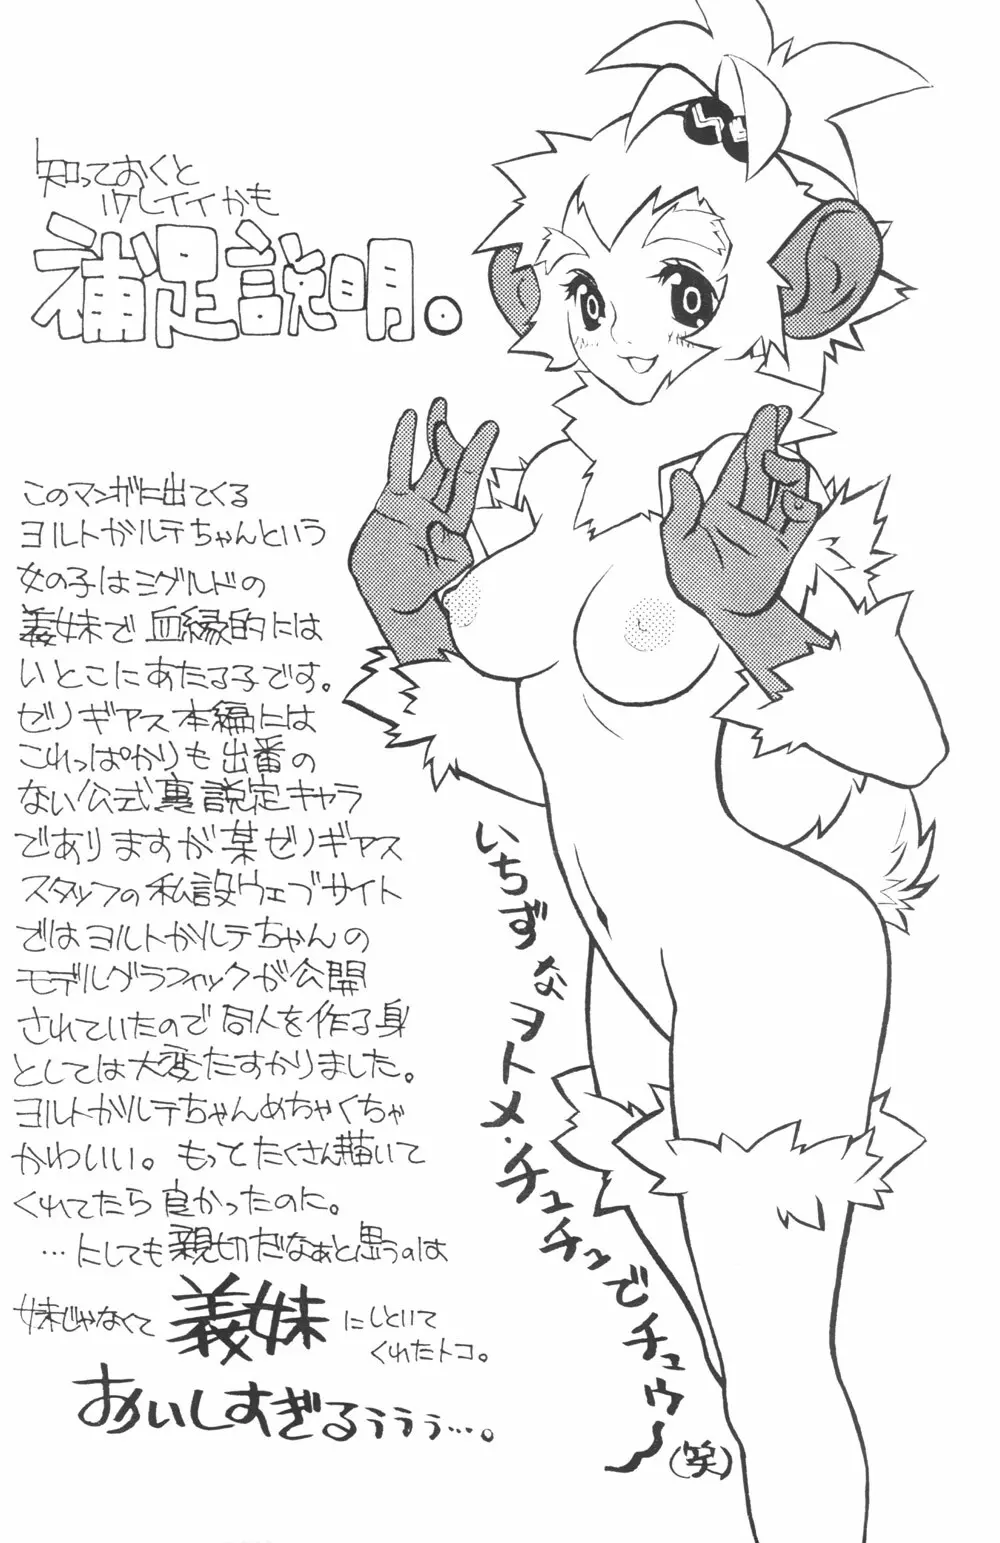 知っておくと
ケレイイかも
補足説明。
このマンガに出てくる
ヨルトガルテちゃんという
女の子はミグルドの
義妹で血縁的には
いとこにあたる子です。
ゼノギアス本編には
これっぱかりも出番の
ない公式裏設定キャラ
でありますが某ゼノギアス
スタッフの私設ウェブサイト
ではヨルトガルテちゃんの
モデルグラフィックが公開
されていたので同人を作る身
としては大変たすかりました。
ヨルトガルテちゃんめちゃくちゃ
かわいい。もっとたくさん描いて
くれてたら良かったのに。
…にしても親切だなぁと思うのは
妹じゃなくて義妹にしといて
くれたトコ。
おいしすぎるぅぅぅ…。
いちずなヲトメ・チュチュンでチュウ〜
(笑)